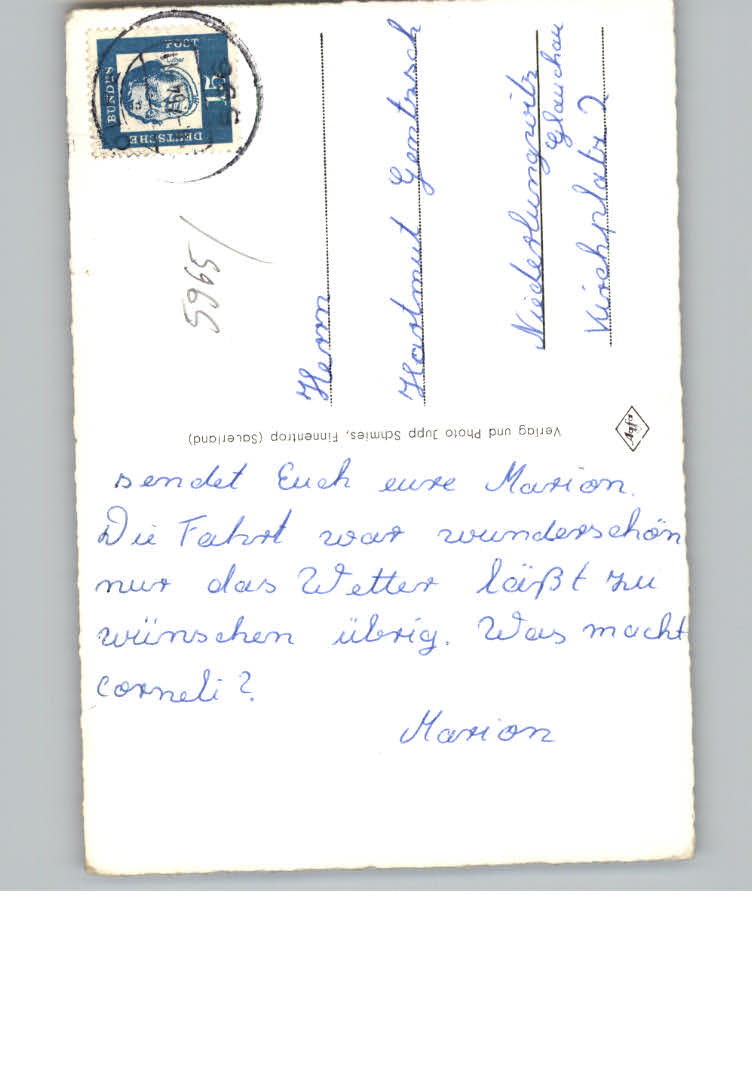 sendet Euch eure Marion.
Die Fahrt war wunderschön
nur das Wetter läßt zu
wünschen übrig. Was macht
Corneli?
Marion
Herrn
Hartmut Gentzsch
Niederlungwitz
Glauchau
Kirchplatz 2
Verlag und Photo Jupp Schmies, Finnentrop (Sauerland)
5965/
DEUTSCHE
BUNDES
POST
15
Agfa